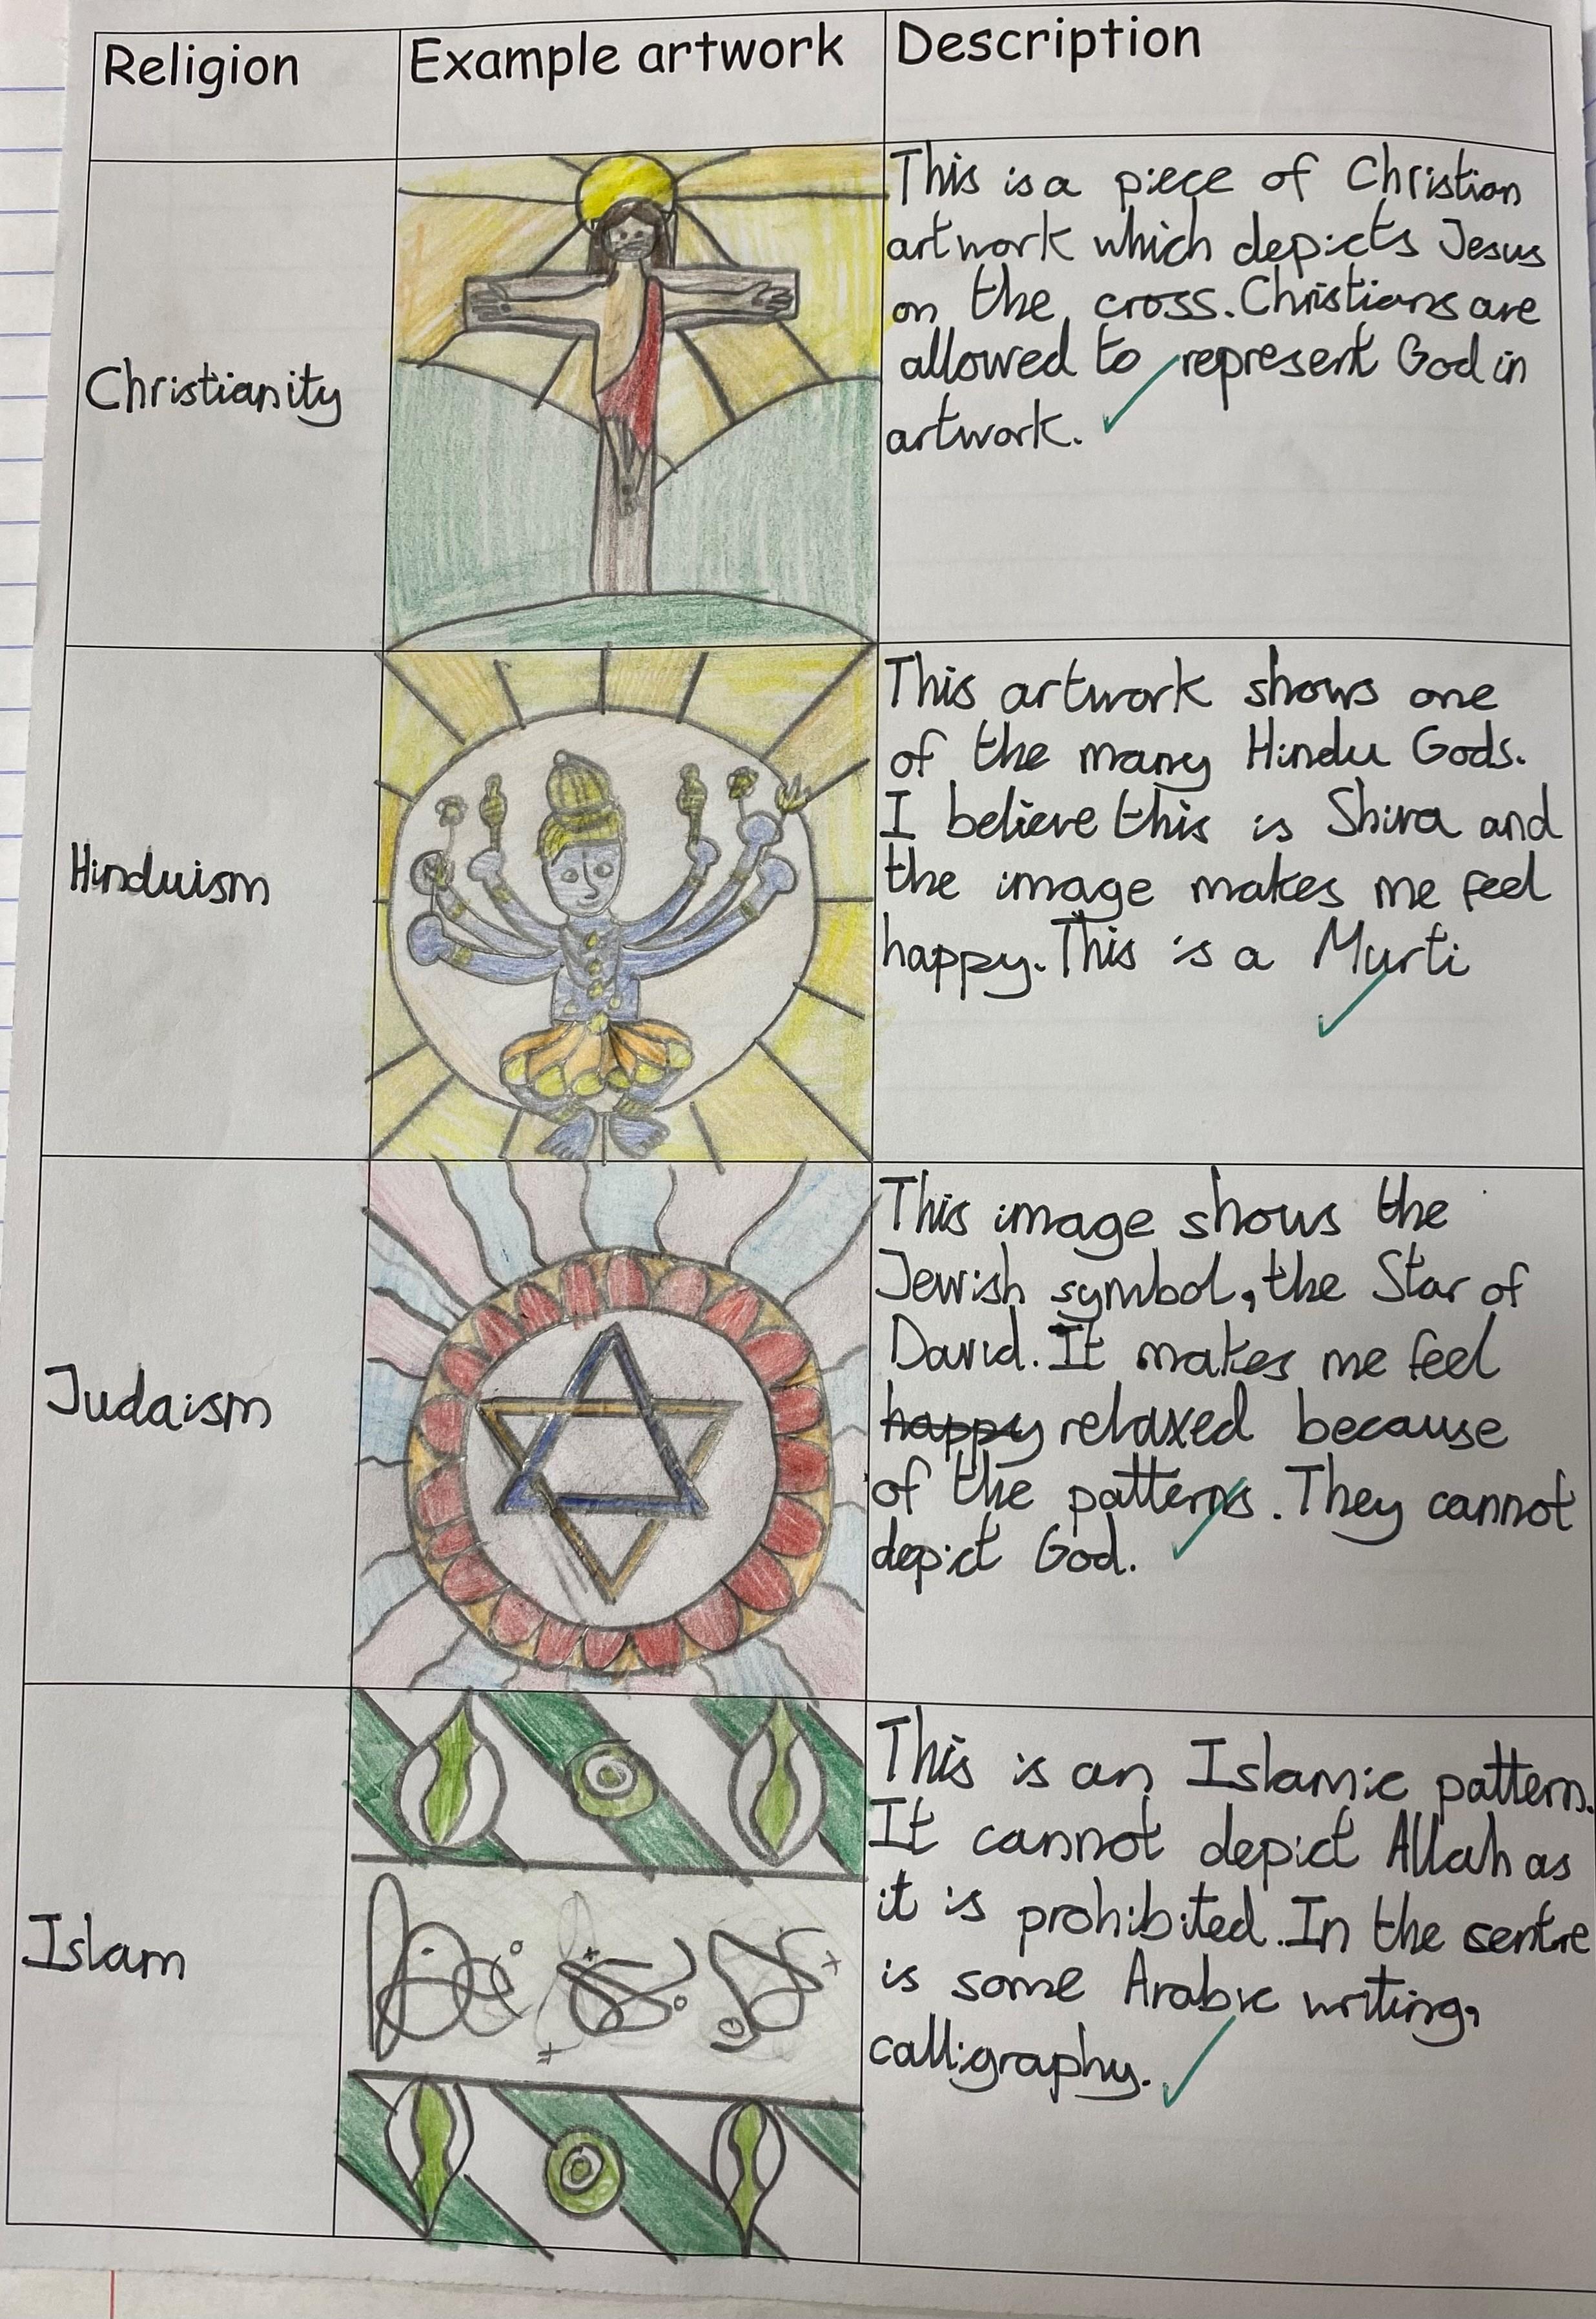 Religion
Example artwork
Description
Christianity
This is a piece of Christian
artwork which depicts Jesus
on the cross. Christians are
allowed to represent God in
artwork.
Hinduism
This artwork shows one
of the many Hindu Gods.
I believe this is Shiva and
the image makes me feel
happy. This is a Murti
Judaism
This image shows the
Jewish symbol, the Star of
David. It makes me feel
happy relaxed because
of the patterns. They cannot
depict God.
Islam
This is an Islamic pattern.
It cannot depict Allah as
it is prohibited. In the centre
is some Arabic writing,
calligraphy.